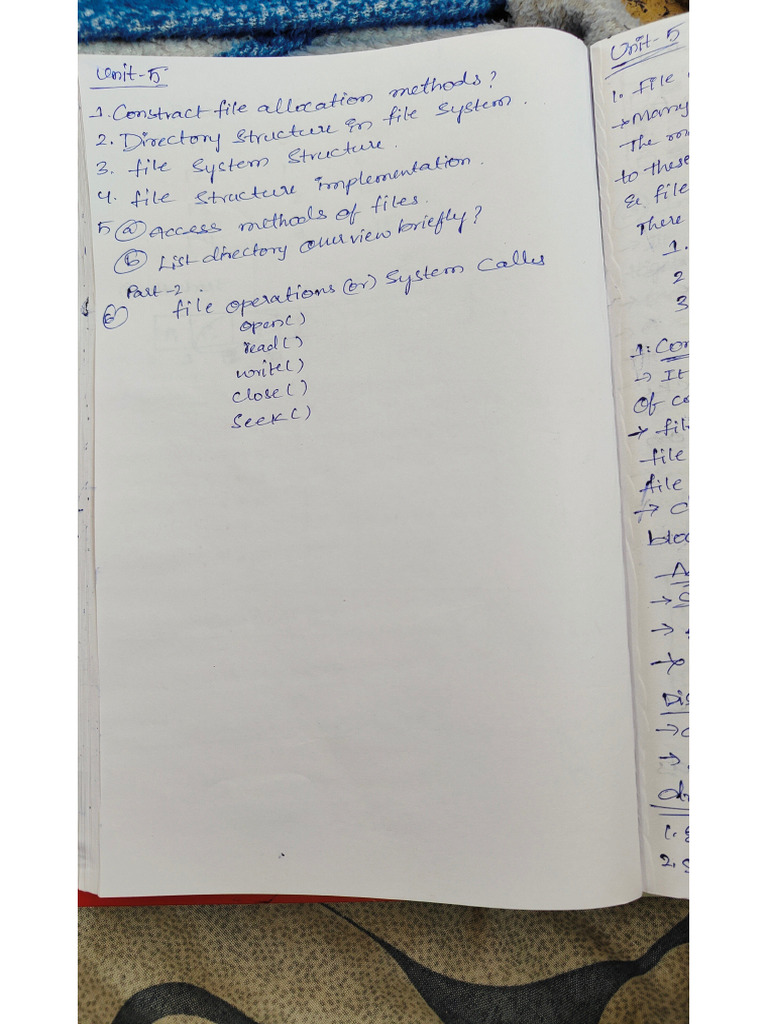 Unit-5
1. Constract file allocation methods?
2. Directory structure in file system.
3. file system structure.
4. file structure implementation.
5 (a) Access methods of files.
(b) List directory overview briefly?
Part-2.
6 file operations (or) system calls
open()
read()
write()
close()
seek()
Unit-5
1. File
* Many
The
to these
& file
There
1.
2
3
1: Con
→ It
Of co
→ fil
file
file
→ C
bloc
A
→ S
→
Dis
→
→
1.
2. S